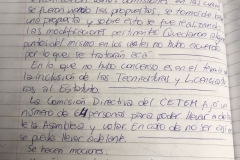 se fueron viendo las propuestas, se tomó de base
una propuesta y sobre esto se fue realizando
las modificaciones pertinentes. Quedaron algunos
puntos del mismo en los cuales no hubo acuerdo
por lo que se tratarán acá.
En lo que no hubo consenso es en el tema
la inclusión de los Tecnicaturas y Licenciatu
ras al Estatuto.
La Comisión Directiva del CETEM fijó un
número de 64 personas para poder llevar adelan
te la Asamblea y votar. En caso de no ser así no
se puede llevar adelante.
Se hacen mociones.